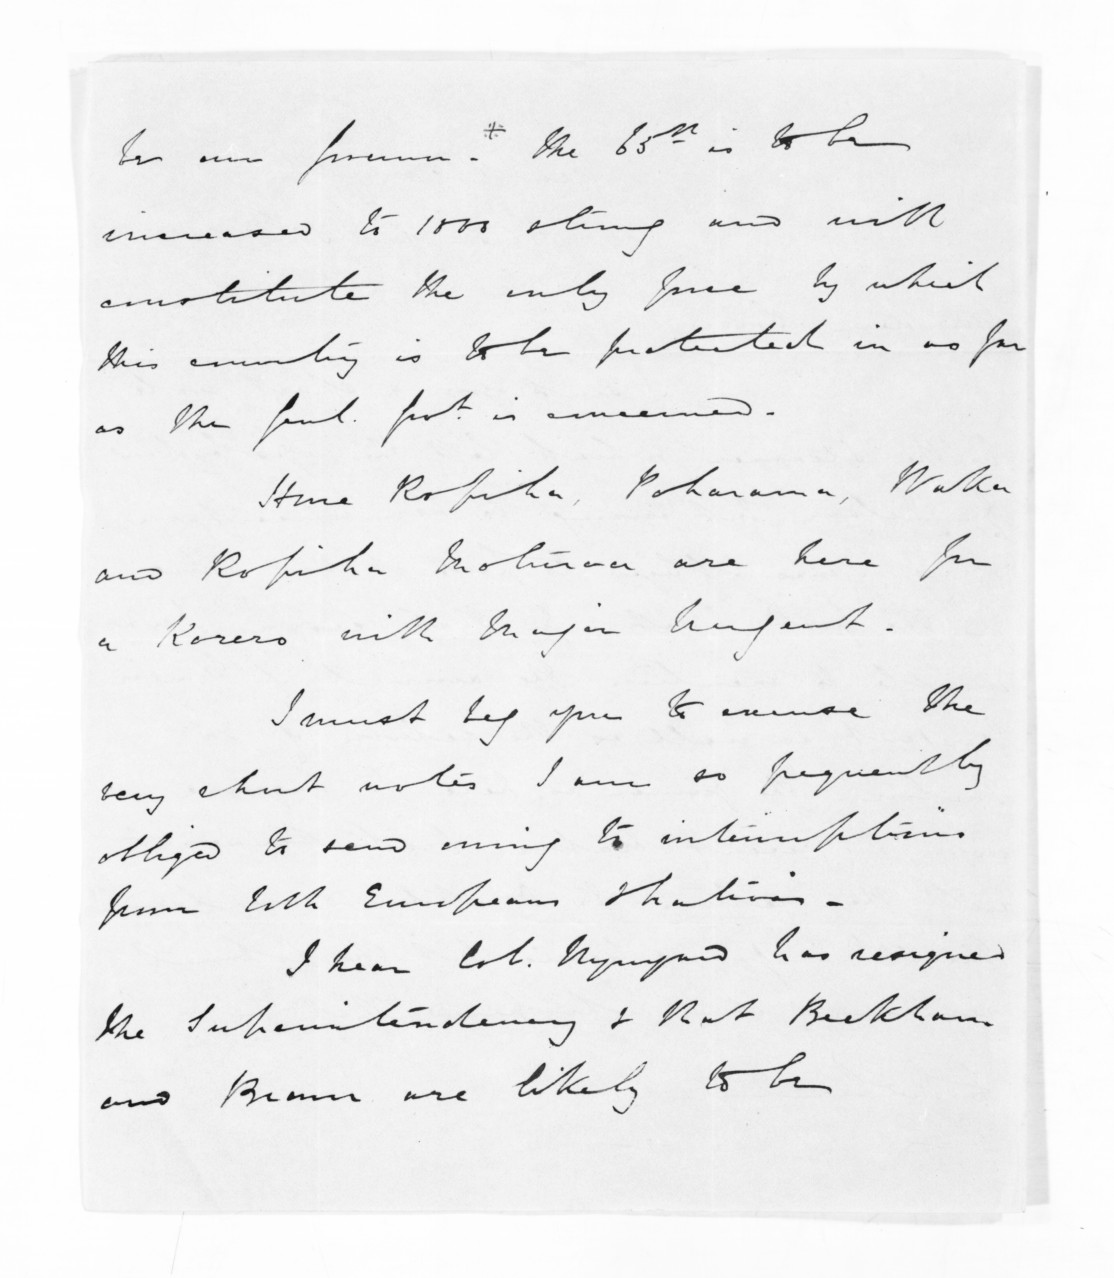 be our governor. + The 65th is to be
increased to 1000 strong and will
constitute the only force by which
this country is to be protected in as far
as the Genl. Govt. is concerned.
Hone Ropiha, Poharama, Waka
and Ropiha Moturoa are here for
a Korero with Major Nugent.
I must beg you to excuse the
very short notes I am so frequently
obliged to send owing to interruptions
from both Europeans & Natives.
I hear Col. Wynyard has resigned
the Superintendency & that Beckham
and Brown are likely to be